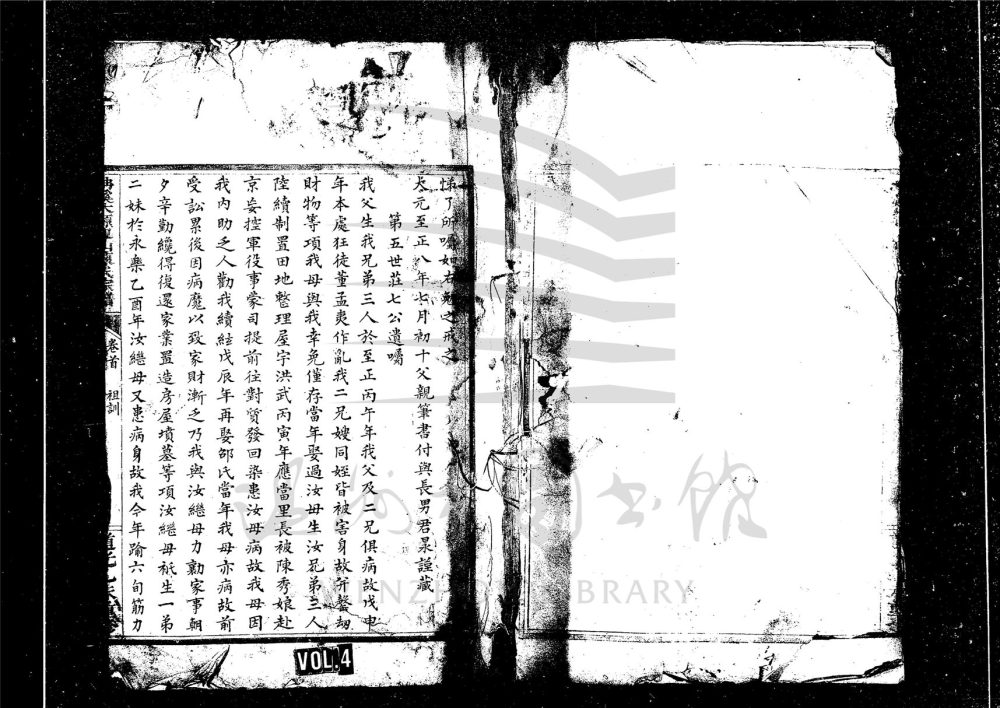 悌了所囑如右勉之戒之
大元至正八年七月初十父親筆書付與長男君杲謹藏
第五世莊七公遺囑
我父生我兄弟三人於至正丙午年我父及二兄俱病故戊申
年本處狂徒董孟奭作亂我二兄嫂同姪皆被害身故所鏧刼
財物等項我母與我幸免僅存當年娶過汝母生汝兄弟三人
陸續制置田地整理屋宇洪武丙寅年應當里長被陳秀娘赴
京妄控軍役事蒙司提前往對質發回染患汝母病故我母因
我內助乏人勸我續絃戊辰年再娶邵氏當年我母亦病故前
受訟累後因病魔以致家財漸乏乃我與汝繼母力勷家事朝
夕辛勤纔得復還家業置造房屋墳墓等項汝繼母祇生一弟
二妹於永樂乙酉年汝繼母又患病身故我今年踰六旬筋力
卷首
祖訓
VOL.4
温州圖書館
WENZHOU LIBRARY